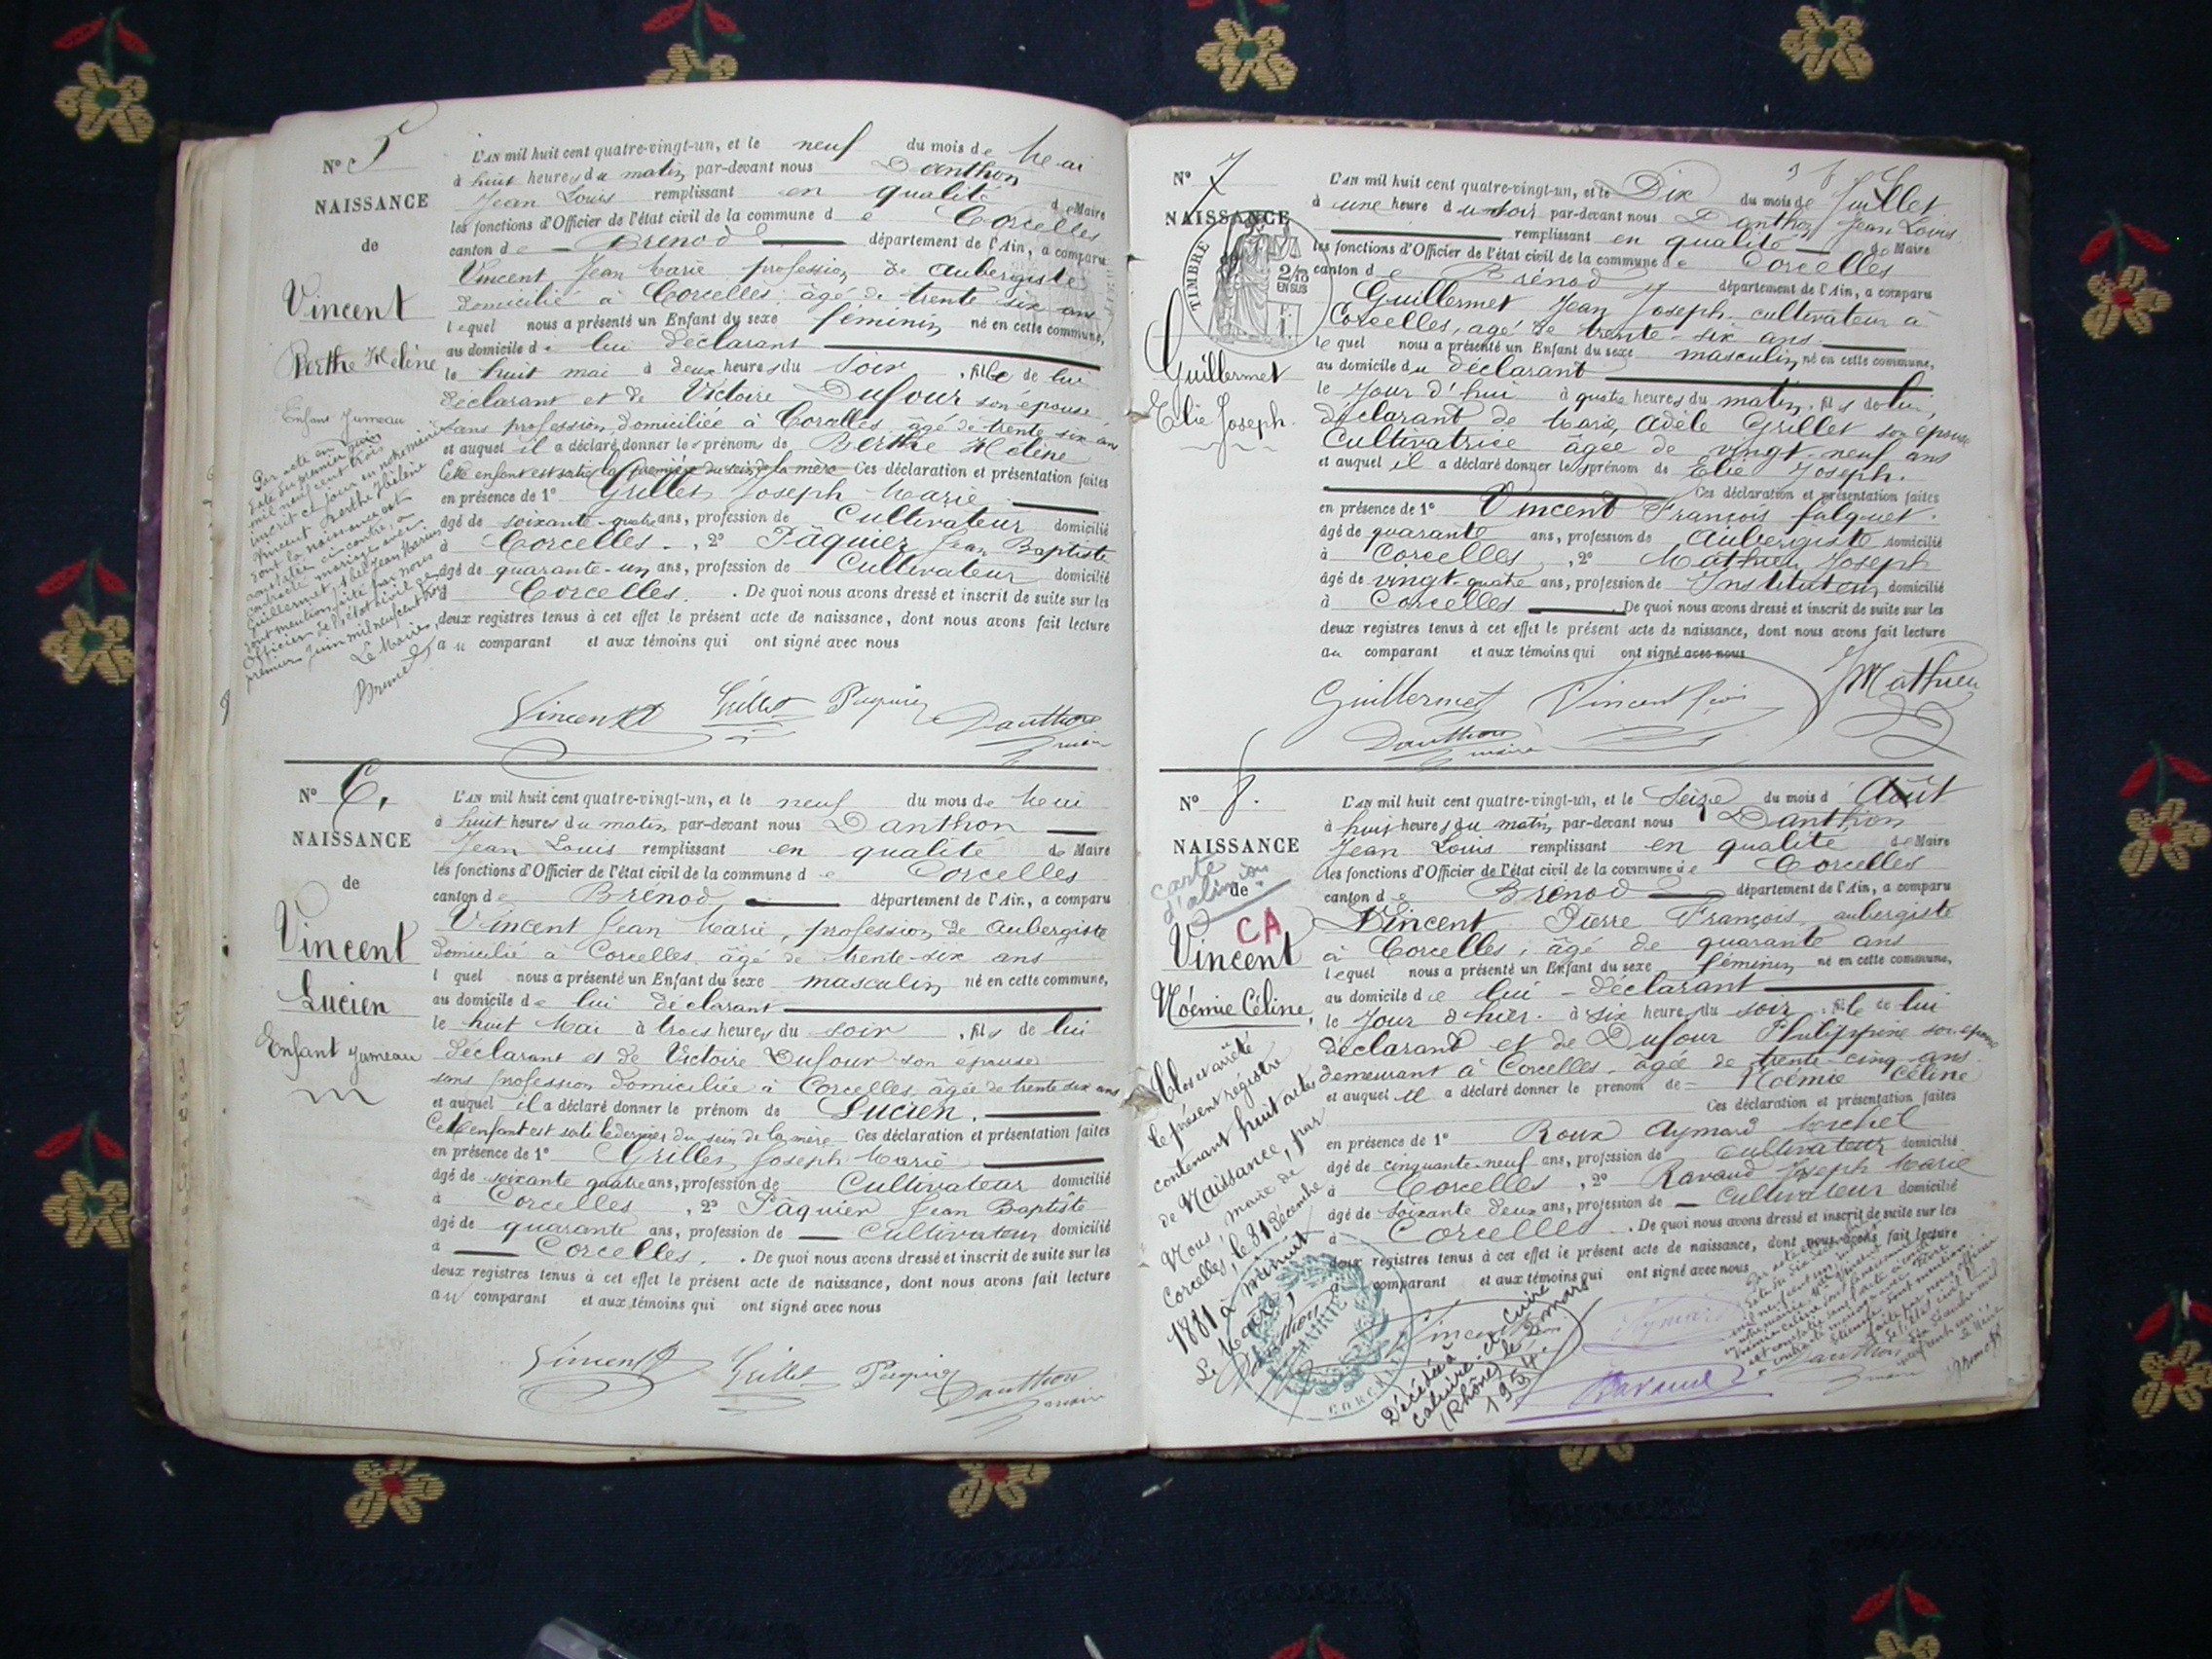 N° 5
NAISSANCE
de
Vincent
Berthe Hélène
Enfant Jumeau
Par acte en
date du premier juin
mil neuf cent trois
inscrit ce jour en notre mairie
Vincent Berthe Hélène
dont la naissance est
constatée ci-contre, a
contracté mariage avec
Guillermet Abel Jean Marius
dont mention faite par nous
Officier de l'état civil ce
premier Juin mil neuf cent trois
Le Maire,
L'AN mil huit cent quatre-vingt-un, et le neuf du mois de Mai
à huit heures du matin par-devant nous Danthon
Jean Louis remplissant en qualité de Maire
les fonctions d'Officier de l'état civil de la commune de Corcelles
canton de Brénod département de l'Ain, a comparu
Vincent Jean Marie profession de aubergiste
domicilié à Corcelles, âgé de trente six ans
lequel nous a présenté un Enfant du sexe féminin né en cette commune,
au domicile de lui déclarant
le huit mai à deux heures du soir, fille de lui
déclarant et de Victoire Dufour son épouse
sans profession, domiciliée à Corcelles âgé de trente six ans
et auquel il a déclaré donner les prénoms de Berthe Hélène
Cette enfant est sortie la première du sein de la mère Ces déclaration et présentation faites
en présence de 1° Grillet Joseph Marie
âgé de soixante-quatre ans, profession de Cultivateur domicilié
à Corcelles, 2° Pâquier Jean Baptiste
âgé de quarante-un ans, profession de Cultivateur domicilié
à Corcelles. De quoi nous avons dressé et inscrit de suite sur les
deux registres tenus à cet effet le présent acte de naissance, dont nous avons fait lecture
au comparant et aux témoins qui ont signé avec nous
Vincent Grillet Paquier Danthon
maire
N° 6.
NAISSANCE
de
Vincent
Lucien
Enfant jumeau
L'AN mil huit cent quatre-vingt-un, et le neuf du mois de Mai
à huit heures du matin par-devant nous Danthon
Jean Louis remplissant en qualité de Maire
les fonctions d'Officier de l'état civil de la commune de Corcelles
canton de Brénod département de l'Ain, a comparu
Vincent Jean Marie, profession de aubergiste
domicilié à Corcelles, âgé de trente-six ans
lequel nous a présenté un Enfant du sexe masculin né en cette commune,
au domicile de lui déclarant
le huit Mai à trois heures du soir, fils de lui
déclarant et de Victoire Dufour son épouse
sans profession domiciliée à Corcelles, âgée de trente six ans
et auquel il a déclaré donner le prénom de Lucien.
Cet enfant est sorti le dernier du sein de la mère Ces déclaration et présentation faites
en présence de 1° Grillet Joseph Marie
âgé de soixante quatre ans, profession de Cultivateur domicilié
à Corcelles, 2° Pâquier Jean Baptiste
âgé de quarante ans, profession de Cultivateur domicilié
à Corcelles. De quoi nous avons dressé et inscrit de suite sur les
deux registres tenus à cet effet le présent acte de naissance, dont nous avons fait lecture
au comparant et aux témoins qui ont signé avec nous
Vincent Grillet Paquier Danthon
maire
N° 7
NAISSANCE
TIMBRE
2/10
EN SUS
Guillermet
Elie Joseph.
L'AN mil huit cent quatre-vingt-un, et le Dix du mois de Juillet
à une heure du soir par-devant nous Danthon Jean Louis
remplissant en qualité de Maire
les fonctions d'Officier de l'état civil de la commune de Corcelles
canton de Brénod département de l'Ain, a comparu
Guillermet Jean Joseph, cultivateur à
Corcelles, âgé de trente-six ans
lequel nous a présenté un Enfant du sexe masculin né en cette commune,
au domicile du déclarant
le Jour d'hui à quatre heures du matin, fils de lui,
déclarant de Marie Adèle Grillet son épouse
Cultivatrice âgée de vingt-neuf ans
et auquel il a déclaré donner les prénom de Elie Joseph.
Ces déclaration et présentation faites
en présence de 1° Vincent François falquet.
âgé de quarante ans, profession de Aubergiste domicilié
à Corcelles, 2° Mathieu Joseph
âgé de vingt-quatre ans, profession de Instituteur domicilié
à Corcelles De quoi nous avons dressé et inscrit de suite sur les
deux registres tenus à cet effet le présent acte de naissance, dont nous avons fait lecture
au comparant et aux témoins qui ont signé avec nous
Guillermet Vincent Mathieu
Danthon
maire
N° 8.
NAISSANCE
carte
de
CA
Vincent
Noémie Céline,
Clos et arrêté
le présent régistre
contenant huit actes
de Naissance, par
Nous, maire de
Corcelles, le 31 Décembre
1881 à minuit
Le Maire,
Danthon
MAIRIE
L'AN mil huit cent quatre-vingt-un, et le Seize du mois d'Août
à huit heures du matin par-devant nous Danthon
Jean Louis remplissant en qualité de Maire
les fonctions d'Officier de l'état civil de la commune de Corcelles
canton de Brénod département de l'Ain, a comparu
Vincent Pierre François, aubergiste
à Corcelles, âgé de quarante ans
lequel nous a présenté un Enfant du sexe féminin né en cette commune,
au domicile de lui déclarant
le Jour d'hier à six heures du soir, fille de lui
déclarant et de Dufour Philippine son épouse
demeurant à Corcelles, âgée de trente-cinq ans
et auquel il a déclaré donner le prénom de Noémie Céline
Ces déclaration et présentation faites
en présence de 1° Roux Aymard Michel
âgé de cinquante-neuf ans, profession de Cultivateur domicilié
à Corcelles, 2° Ravaud Joseph Marie
âgé de soixante deux ans, profession de Cultivateur domicilié
à Corcelles. De quoi nous avons dressé et inscrit de suite sur les
deux registres tenus à cet effet le présent acte de naissance, dont nous avons fait lecture
comparant et aux témoins qui ont signé avec nous
Vincent Aymard
Ravaud
Danthon
maire
Décédée à
Caluire-et-Cuire
(Rhône) le mars